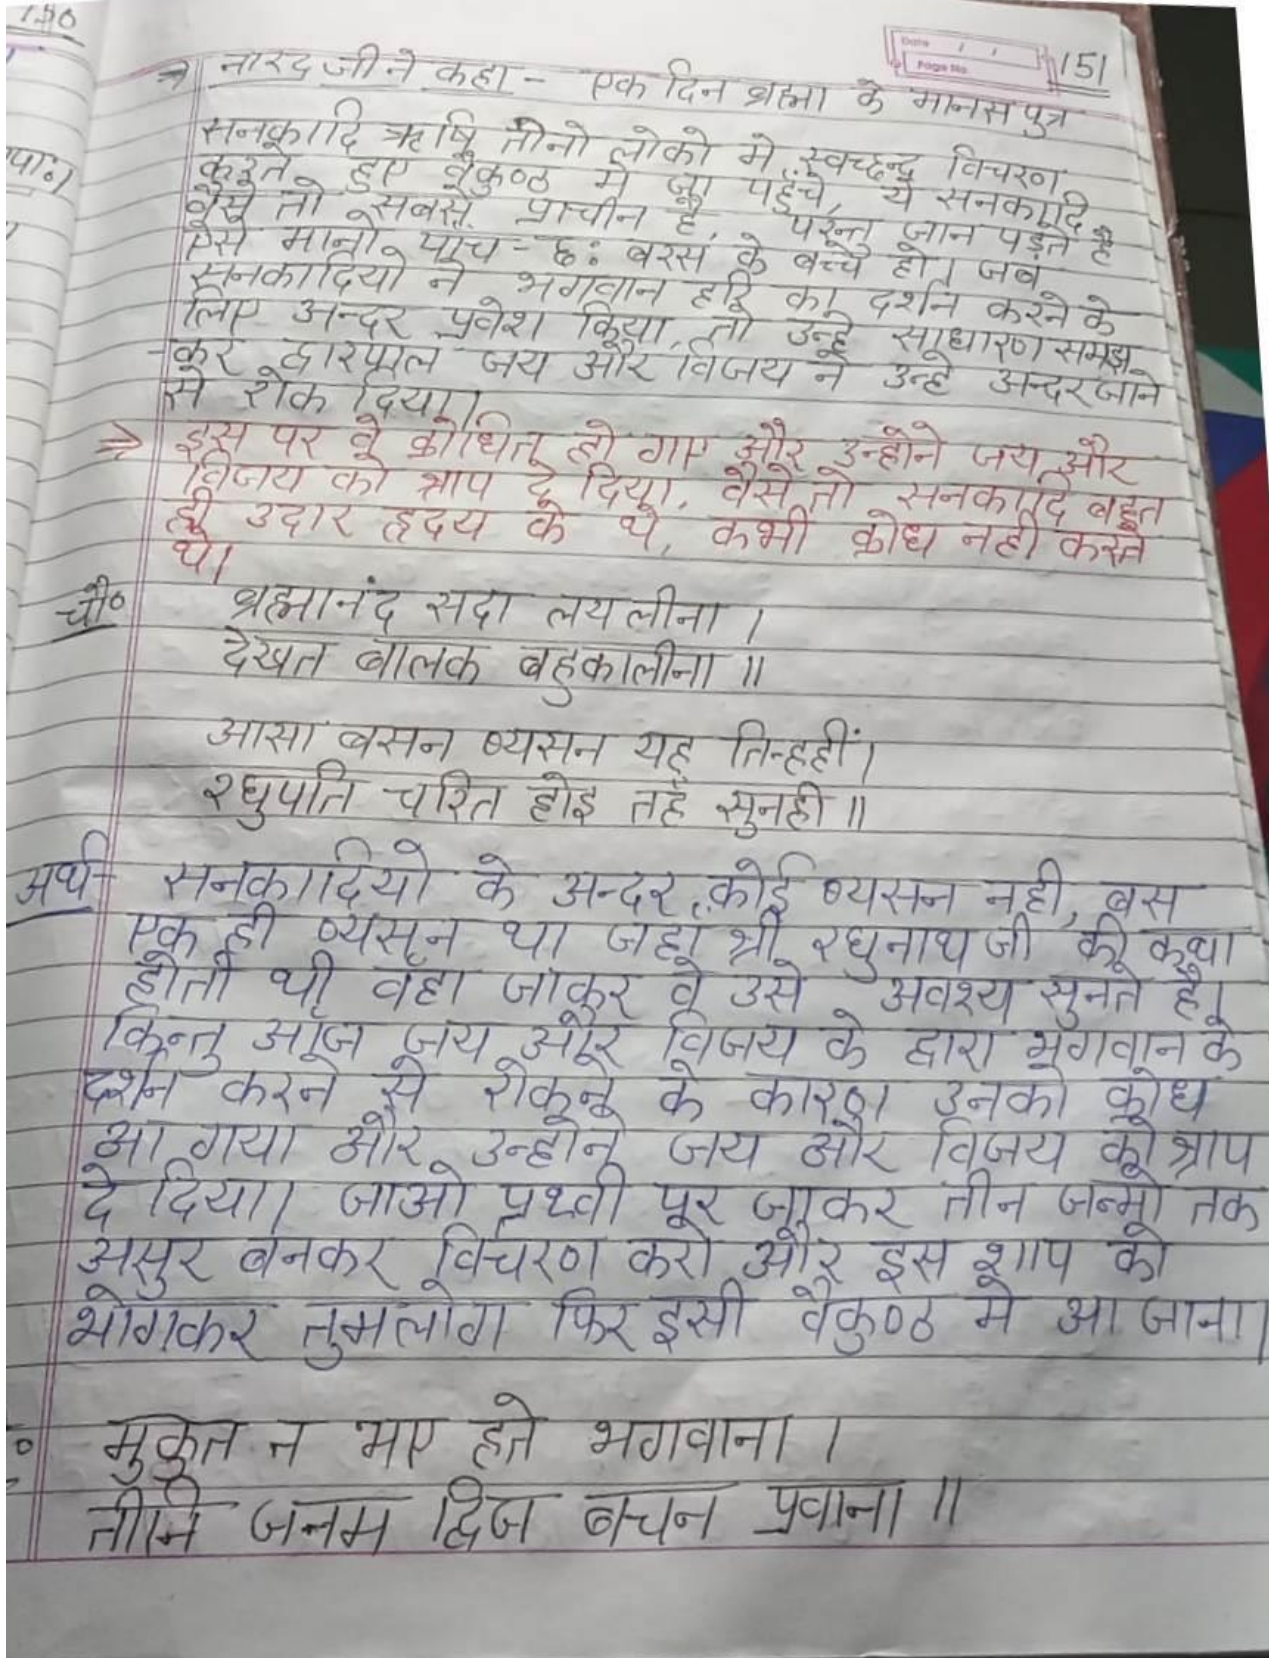 150
Date / /
Page No.
151
⇒ नारद जी ने कहा - एक दिन ब्रह्मा के मानस पुत्र
सनकादि ऋषि तीनो लोको मे स्वच्छन्द विचरण
करते हुए वैकुण्ठ मे जा पहुँचे, ये सनकादि
वैसे तो सबसे प्राचीन है, परन्तु जान पड़ते है
ऐसे मानो पाच - छः बरस के बच्चे हो। जब
सनकादियो ने भगवान हरि का दर्शन करने के
लिए अन्दर प्रवेश किया, तो उन्हे साधारण समझ
कर द्वारपाल जय और विजय ने उन्हे अन्दर जाने
से रोक दिया।
⇒ इस पर वे क्रोधित हो गए और उन्होने जय और
विजय को श्राप दे दिया, वैसे तो सनकादि बहुत
ही उदार हृदय के थे, कभी क्रोध नही करते
थे।
चौ० ब्रह्मानंद सदा लयलीना ।
देखत बालक बहुकालीना ॥
आसा बसन ब्यसन यह तिन्हहीं।
रघुपति चरित होइ तहँ सुनही ॥
अर्थ - सनकादियो के अन्दर कोई ब्यसन नही, बस
एक ही ब्यसन था जहा श्री रघुनाथ जी की कथा
होती थी वहा जाकर वे उसे अवश्य सुनते है।
किन्तु आज जय और विजय के द्वारा भगवान के
दर्शन करने से रोकने के कारण उनको क्रोध
आ गया और उन्होने जय और विजय को श्राप
दे दिया। जाओ प्रथ्वी पर जाकर तीन जन्मो तक
असुर बनकर विचरण करो और इस शाप को
भोगकर तुमलोग फिर इसी वैकुण्ठ मे आ जाना।
मुकुत न भए हते भगवाना ।
तीनि जनम द्विज बचन प्रवाना ॥